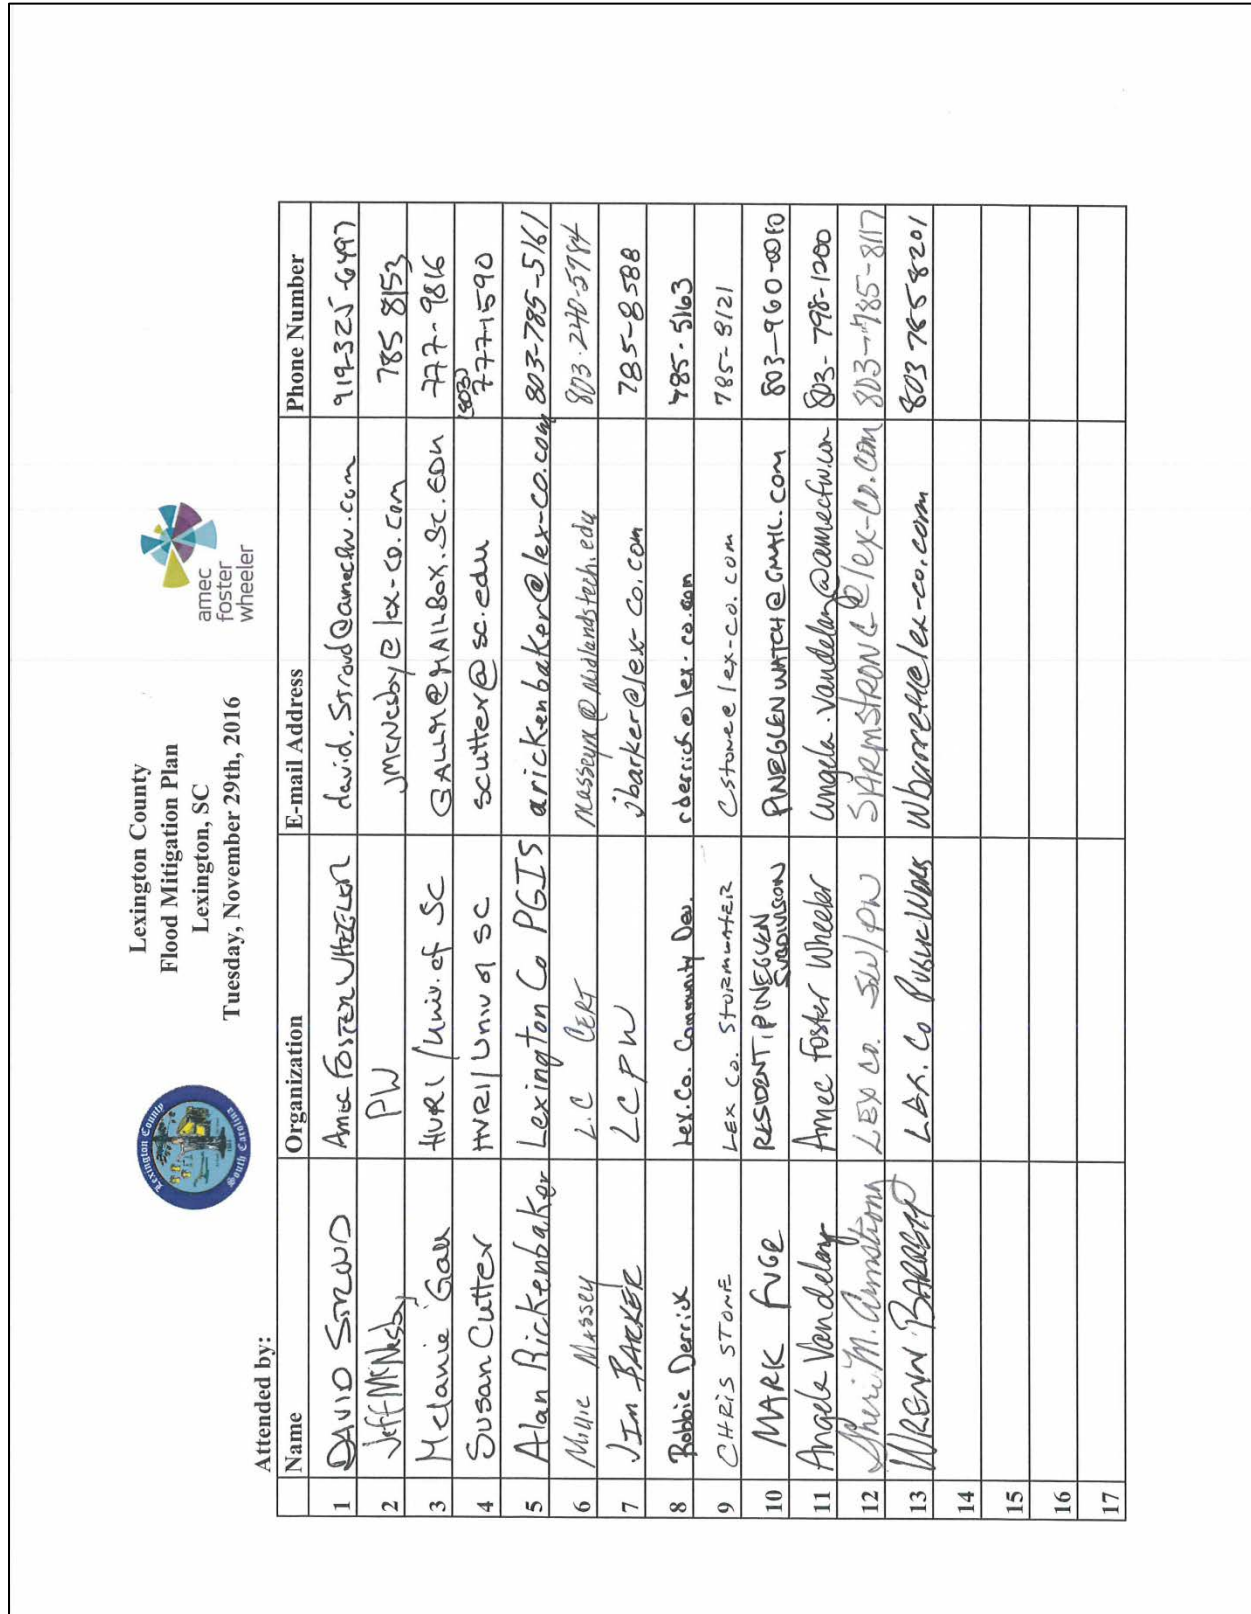 Lexington County
Flood Mitigation Plan
Lexington, SC
Tuesday, November 29th, 2016
Lexington County
South Carolina
amec
foster
wheeler
Attended by:
Name Organization E-mail Address Phone Number
1 DAVID STROUD Amec FOSTER WHEELER david.stroud@amecfw.com 919-325-6497
2 Jeff McNesby PW JMcNesby@lex-co.com 785 8153
3 Melanie Gall HVRI/Univ. of SC GALLM@MAILBOX.SC.EDU 777-9816
4 Susan Cutter HVRI/Univ of SC scutter@sc.edu (803) 777-1590
5 Alan Rickenbaker Lexington Co PGIS arickenbaker@lex-co.com 803-785-5161
6 Millie Massey L.C CERT masseym@midlandstech.edu 803-240-5784
7 Jim BARKER LCPW jbarker@lex-co.com 785-8588
8 Robbie Derrick Lex. Co. Community Dev. rderrick@lex-co.com 785-5163
9 CHRIS STONE LEX CO. STORMWATER Cstone@lex-co.com 785-8121
10 MARK FUGE RESIDENT, PINEGLEN SUBDIVISION PINEGLENWATCH@GMAIL.COM 803-960-0010
11 Angela Vandelay Amec Foster Wheeler angela.vandelay@amecfw.com 803-798-1200
12 Sheri M. Armstrong LEX CO. SW/PW SARMSTRONG@lex-co.com 803-785-8117
13 WRENN BARRETT LEX. Co PUBLIC WORKS wbarrett@lex-co.com 803 785 8201
14
15
16
17